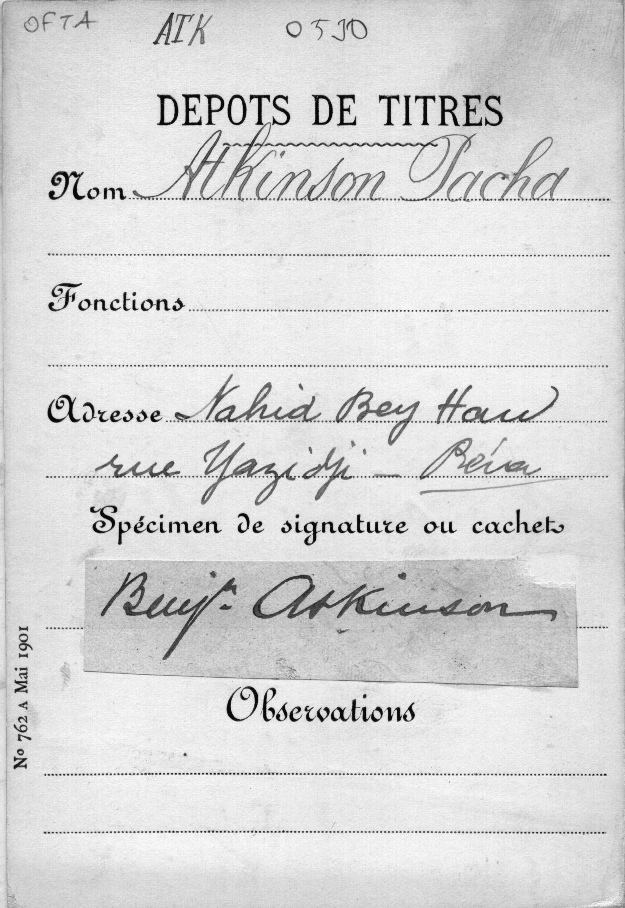 OFTA ATK 0530
DEPOTS DE TITRES
Nom Atkinson Pacha
Fonctions
Adresse Nahid Bey Han
rue Yazidji – Péra
Spécimen de signature ou cachet
Benjn. Atkinson
Observations
No 762 A Mai 1901